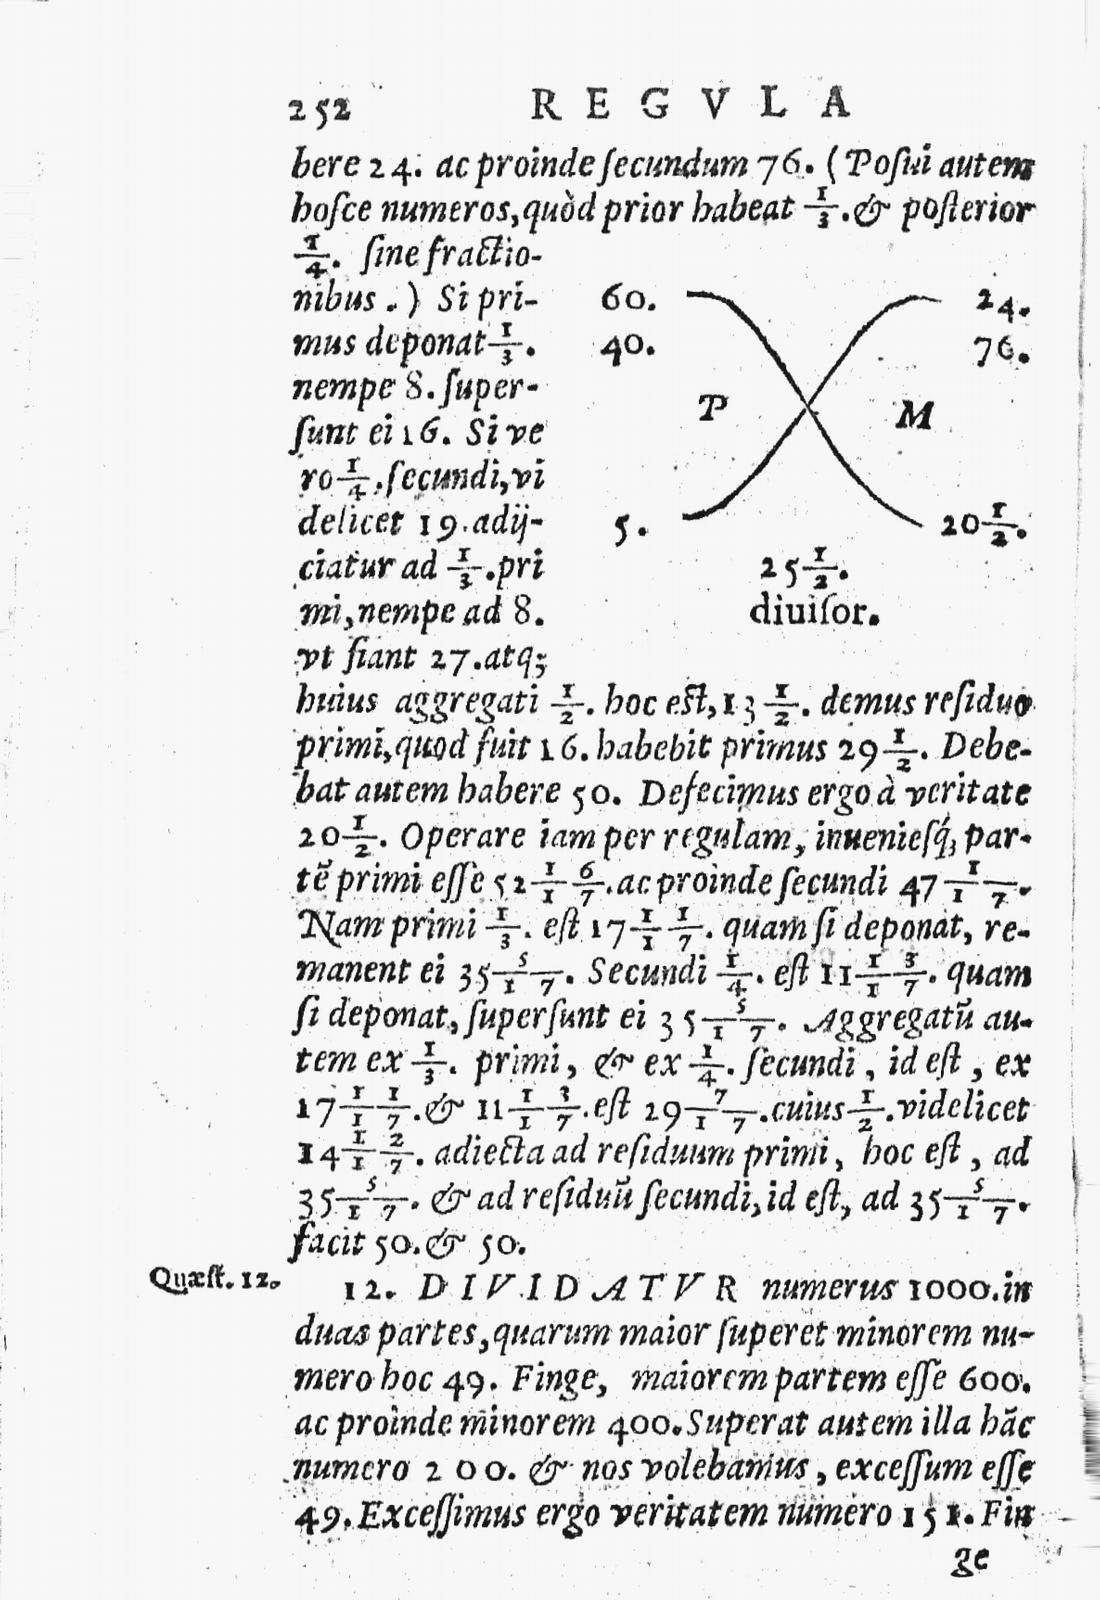 252 REGVLA
bere 24. ac proinde ſecundum 76. (Poſui autem
hoſce numeros, quòd prior habeat 1/3. & poſterior
1/4. ſine fractio-
nibus.) Si pri-
mus deponat 1/3.
nempe 8. ſuper-
ſunt ei 16. Si ve
ro 1/4. ſecundi, vi
delicet 19. adij-
ciatur ad 1/3. pri
mi, nempe ad 8.
vt fiant 27. atq;
60. 24.
40. 76.
P M
5. 20 1/2.
25 1/2.
diuiſor.
huius aggregati 1/2. hoc eſt, 13 1/2. demus reſiduo
primi, quod fuit 16. habebit primus 29 1/2. Debe-
bat autem habere 50. Defecimus ergo à veritate
20 1/2. Operare iam per regulam, inuenieſq́; par-
tẽ primi eſſe 52 1/1 6/7. ac proinde ſecundi 47 1/17.
Nam primi 1/3. eſt 17 1/1 1/7. quam ſi deponat, re-
manent ei 35 5/17. Secundi 1/4. eſt 11 1/1 3/7. quam
ſi deponat, ſuperſunt ei 35 5/17. Aggregatũ au-
tem ex 1/3. primi, & ex 1/4. ſecundi, id eſt, ex
17 1/1 1/7. & 11 1/1 3/7. eſt 29 7/17. cuius 1/2. videlicet
14 1/1 2/7. adiecta ad reſiduum primi, hoc eſt, ad
35 5/17. & ad reſiduũ ſecundi, id eſt, ad 35 5/17.
facit 50. & 50.
Quæſt. 12. 12. DIVIDATVR numerus 1000. in
duas partes, quarum maior ſuperet minorem nu-
mero hoc 49. Finge, maiorem partem eſſe 600.
ac proinde minorem 400. Superat autem illa hãc
numero 200. & nos volebamus, exceſſum eſſe
49. Exceſſimus ergo veritatem numero 151. Fin
ge